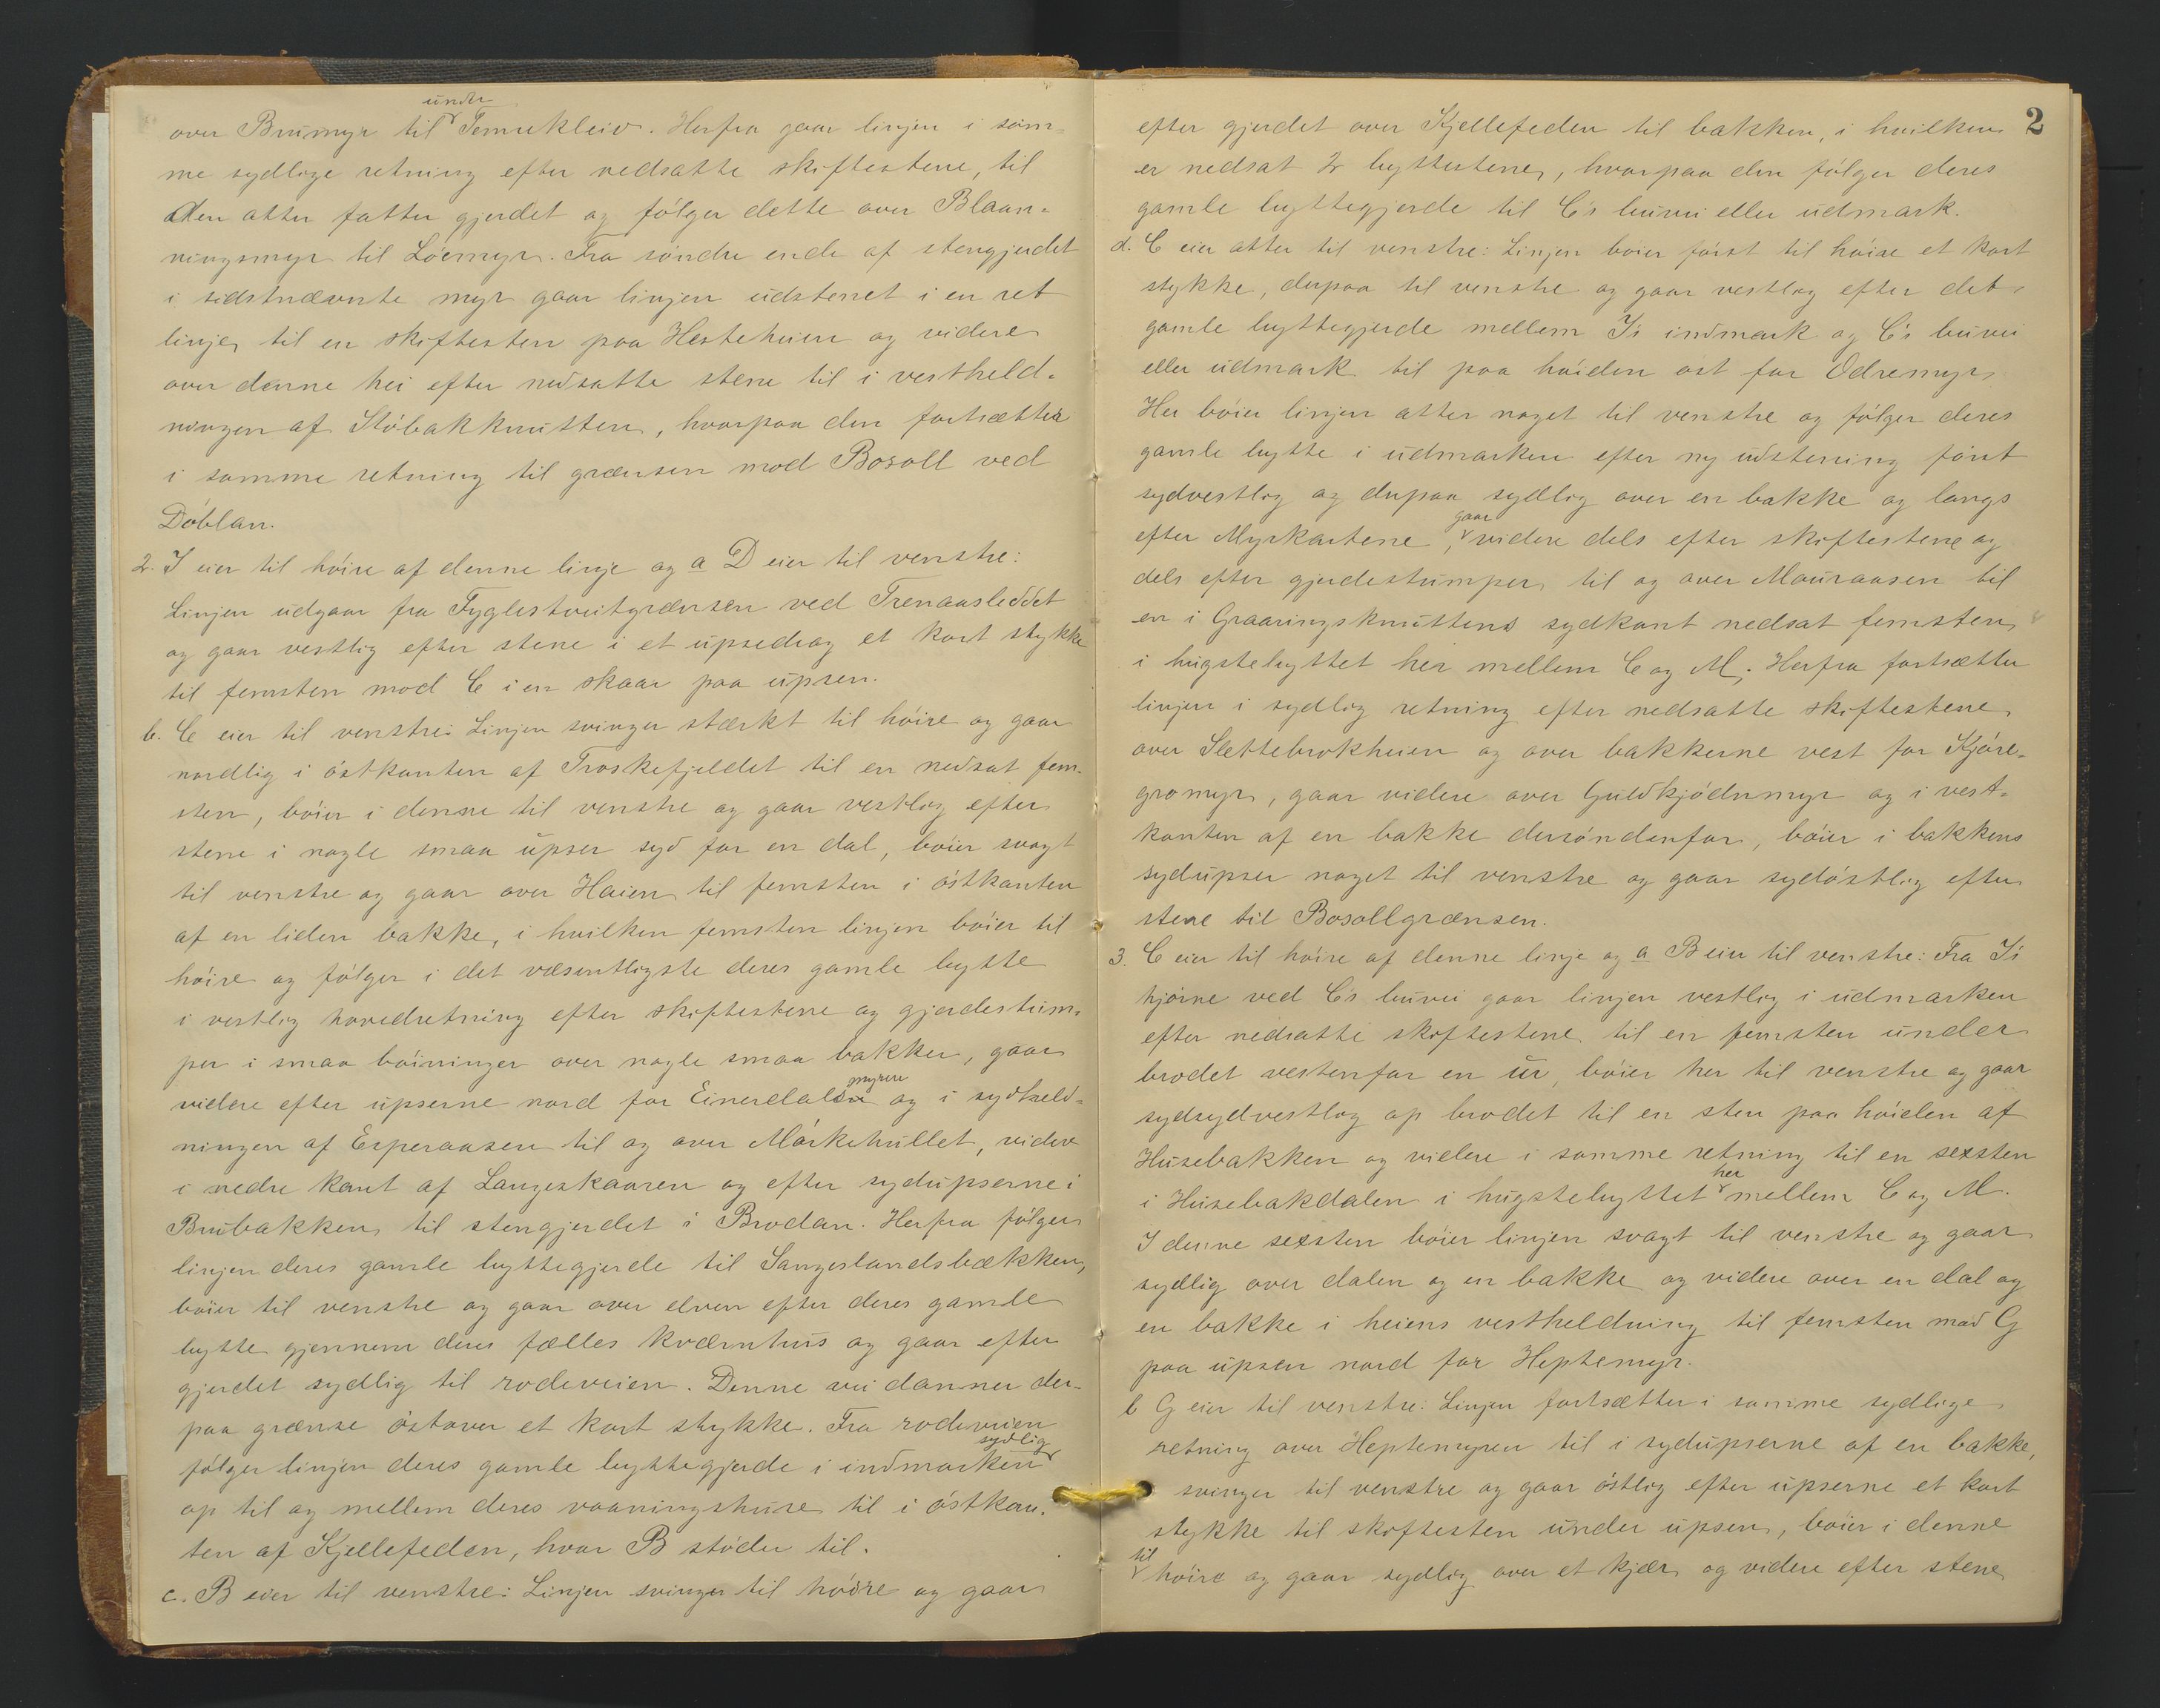 over Brumyr til under Temukleiv. Herfra gaar linjen i sam-
me sydlige retning efter nedsatte skiftestene, til
den atter fatter gjerdet og følger dette over Blaan-
ningsmyr til Löemyr. Fra söndre ende af stengjerdet
i sidstnævnte myr gaar linjen udstenet i en ret
linje til en skiftesten paa Hesteheien og videre
over denne hei efter nedsatte stene til i vestheld-
ningen af Stöbakknutten, hvorpaa den fortsætter
i samme retning til grænsen mod Bosoll ved
Döblan.
2. I eier til höire af denne linje og a D eier til venstre:
Linjen udgaar fra Fyglestveitgrænsen ved Trenaasleddet
og gaar vestlig efter stene i et upsedrag et kort stykke
til femsten mod C i en skaar paa upsen.
b. C eier til venstre: Linjen svinger stærkt til höire og gaar
nordlig i östkanten af Troskefjeldet til en nedsat fem-
sten, böier i denne til venstre og gaar vestlig efter
stene i nogle smaa upser syd for en dal, böier svagt
til venstre og gaar over Haien til femsten i östkanten
af en liden bakke, i hvilken femsten linjen böier til
höire og fölger i det væsentligste deres gamle bytte
i vestlig hovedretning efter skiftestene og gjerdestum-
per i smaa böininger over nogle smaa bakker, gaar
videre efter upserne nord for Einerdals myrene og i sydheld-
ningen af Esperaasen til og over Mörkehullet, videre
i nedre kant af Langeskaaren og efter sydupserne i
Brubakken til stengjerdet i Brodan. Herfra fölger
linjen deres gamle byttegjerde til Sangeslandsbækken,
böier til venstre og gaar over elven efter deres gamle
bytte gjennem deres fælles kværnhus og gaar efter
gjerdet sydlig til rodeveien. Denne vei danner der-
paa grænse östover et kort stykke. Fra rodeveien
fölger linjen deres gamle byttegjerde i indmarken sydlig
op til og mellem deres vaaningshuse til i östkan-
ten af Kjellefeden, hvor B stöder til.
c. B eier til venstre: Linjen svinger til höire og gaar
2
efter gjerdet over Kjellefeden til bakken, i hvilken
er nedsat 2 byttestene, hvorpaa den fölger deres
gamle byttegjerde til C's buvei eller udmark.
d. C eier atter til venstre: Linjen böier först til höire et kort
stykke, derpaa til venstre og gaar vestlig efter det
gamle byttegjerde mellem I's indmark og C's buvei
eller udmark til paa höiden öst for Odremyr.
Her böier linjen atter noget til venstre og fölger deres
gamle bytte i udmarken efter ny udstening först
sydvestlig og derpaa sydlig over en bakke og langs
efter Myrkartene, gaar videre dels efter skiftestene og
dels efter gjerdestumper til og over Mauraasen til
en i Graaringsknuttens sydkant nedsat femsten
i hugstebyttet her mellem C og M. Herfra fortsætter
linjen i sydlig retning efter nedsatte skiftestene
over Slettebrokheien og over bakkerne vest for Kjöre-
gromyr, gaar videre over Guldkjödnmyr og i vest-
kanten af en bakke dersöndenfor, böier i bakkens
sydupser noget til venstre og gaar sydöstlig efter
stene til Bosollgrænsen.
3. C eier til höire af denne linje og a B eier til venstre: Fra I's
hjörne ved C's buvei gaar linjen vestlig i udmarken
efter nedsatte skiftestene til en femsten under
brodet vestenfor en ur, böier her til venstre og gaar
sydsydvestlig op brodet til en sten paa höiden af
Husebakken og videre i samme retning til en sexsten
i Husebakdalen i hugstebyttet her mellem C og M.
I denne sexsten böier linjen svagt til venstre og gaar
sydlig over dalen og en bakke og videre over en dal og
en bakke i heiens vestheldning til femsten mod G
paa upsen nord for Heptemyr.
b G eier til venstre: Linjen fortsætter i samme sydlige
retning over Heptemyren til i sydupserne af en bakke,
svinger til venstre og gaar östlig efter upserne et kort
stykke til skiftesten under upsen, böier i denne
til höire og gaar sydlig over et kjær og videre efter stene